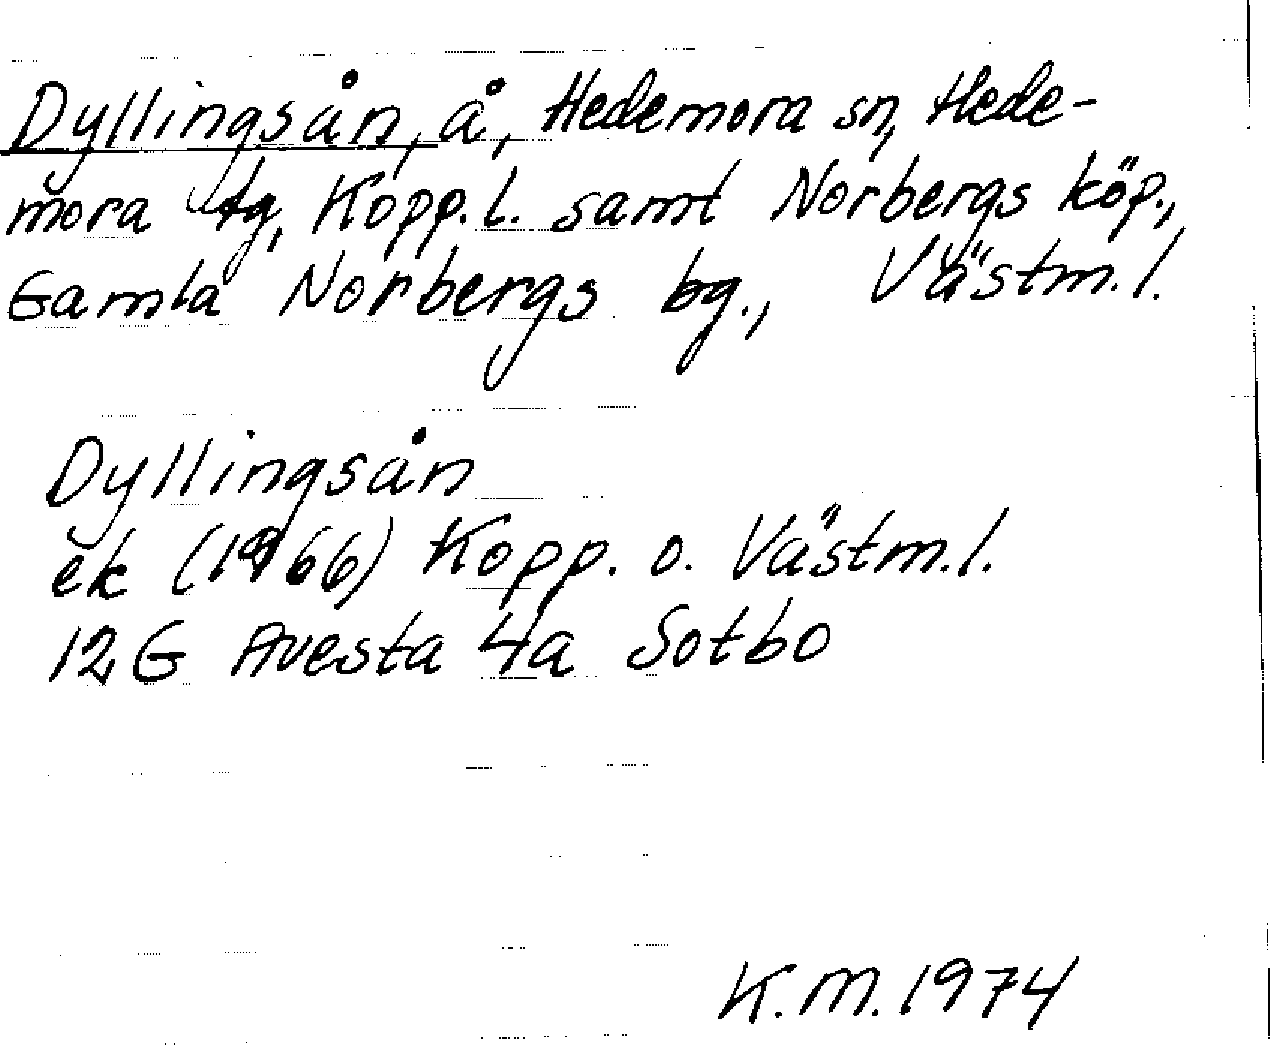 Dyllingsån, å, Hedemora sn, Hede-
mora tg, Kopp.l. samt Norbergs köp.,
Gamla Norbergs bg., Västm.l.
Dyllingsån
ek (1966) Kopp. o. Västm.l.
12G Avesta 4a Sotbo
K.M. 1974